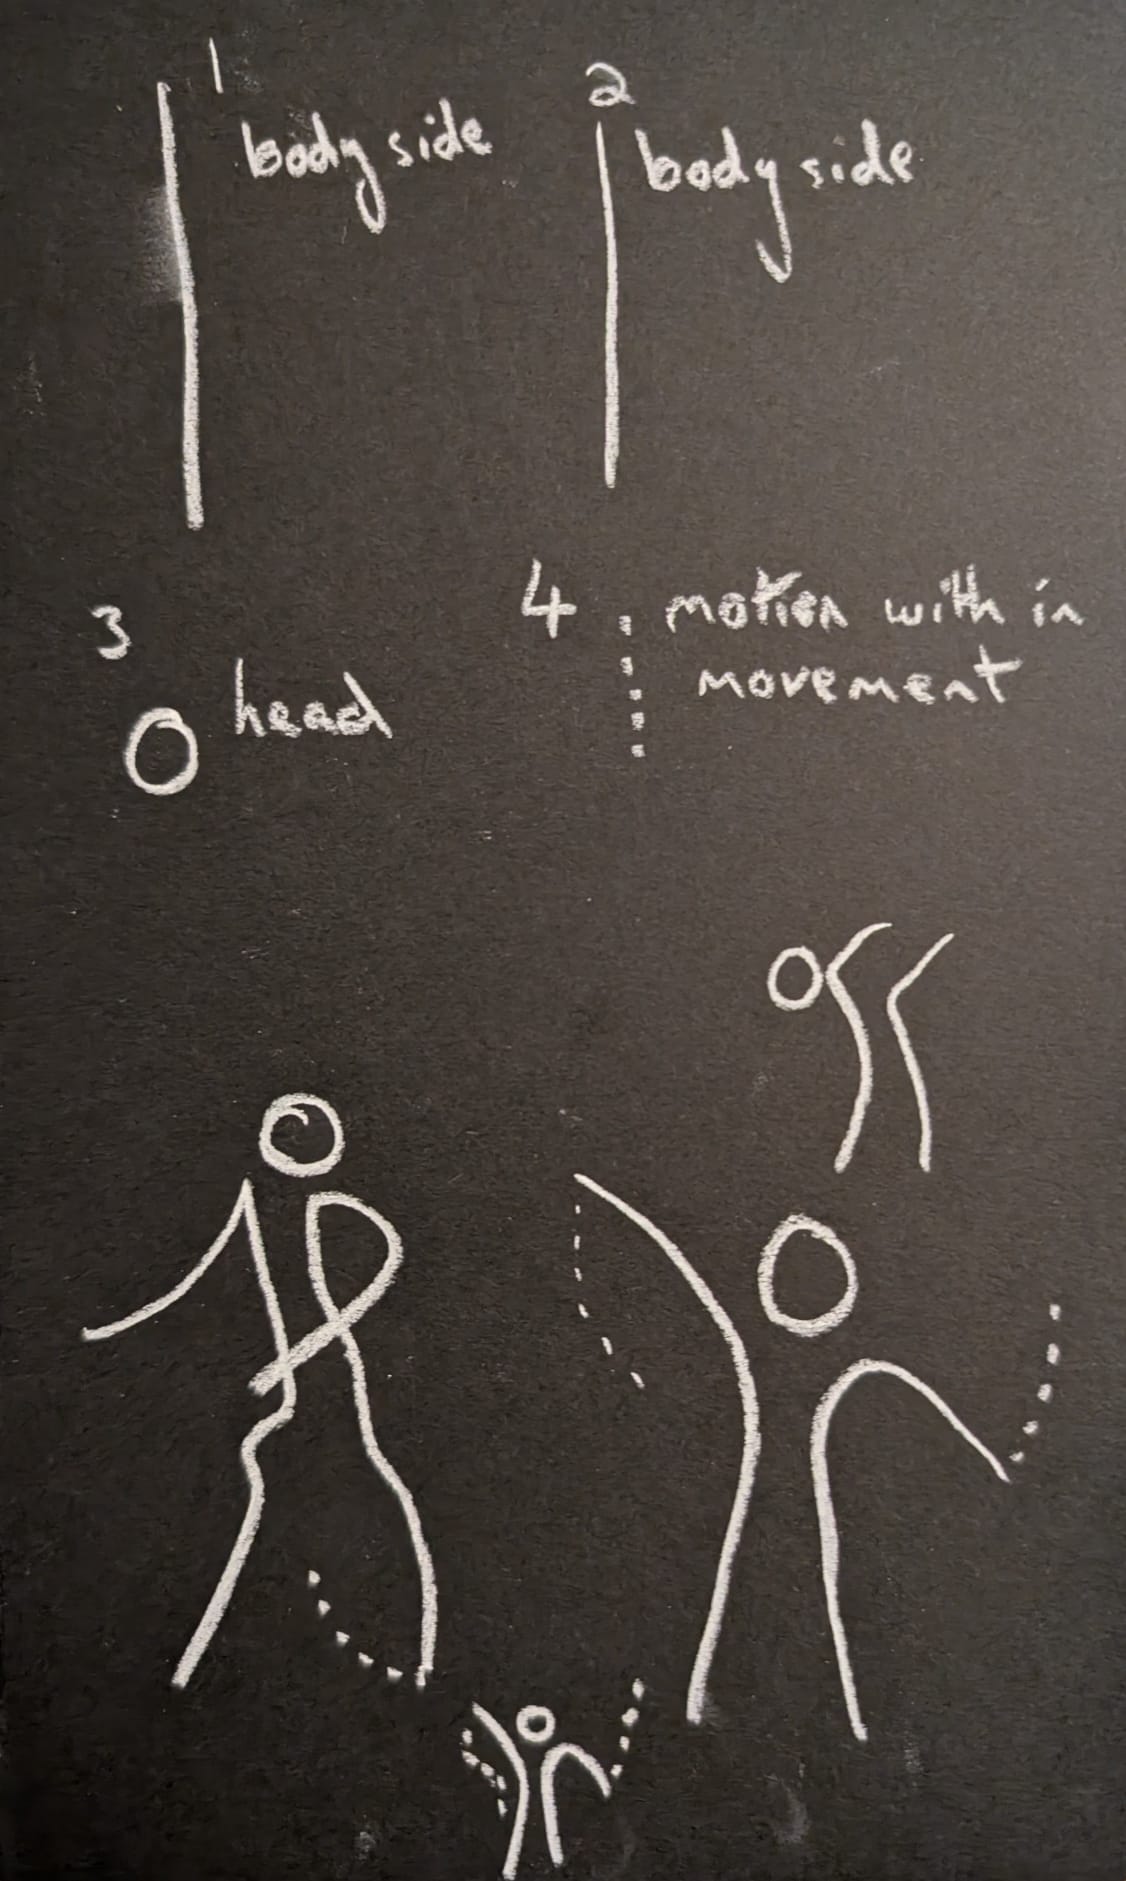 1
body side
2
body side
3
head
4
motion with in
movement